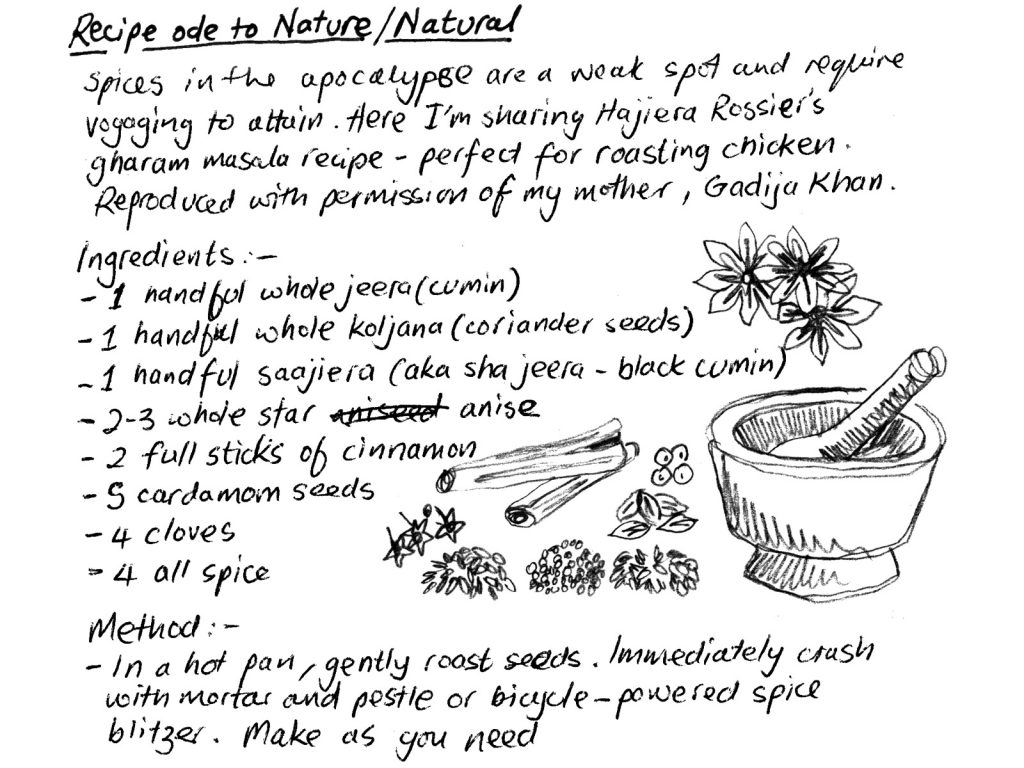 Recipe ode to Nature/Natural
Spices in the apocalypse are a weak spot and require
voyaging to attain. Here I'm sharing Hajiera Rossier's
gharam masala recipe - perfect for roasting chicken.
Reproduced with permission of my mother, Gadija Khan.
Ingredients:-
- 1 handful whole jeera (cumin)
- 1 handful whole koljana (coriander seeds)
- 1 handful saajiera (aka sha jeera - black cumin)
- 2-3 whole star aniseed anise
- 2 full sticks of cinnamon
- 5 cardamom seeds
- 4 cloves
- 4 all spice
Method:-
- In a hot pan, gently roast seeds. Immediately crush
with mortar and pestle or bicycle-powered spice
blitzer. Make as you need